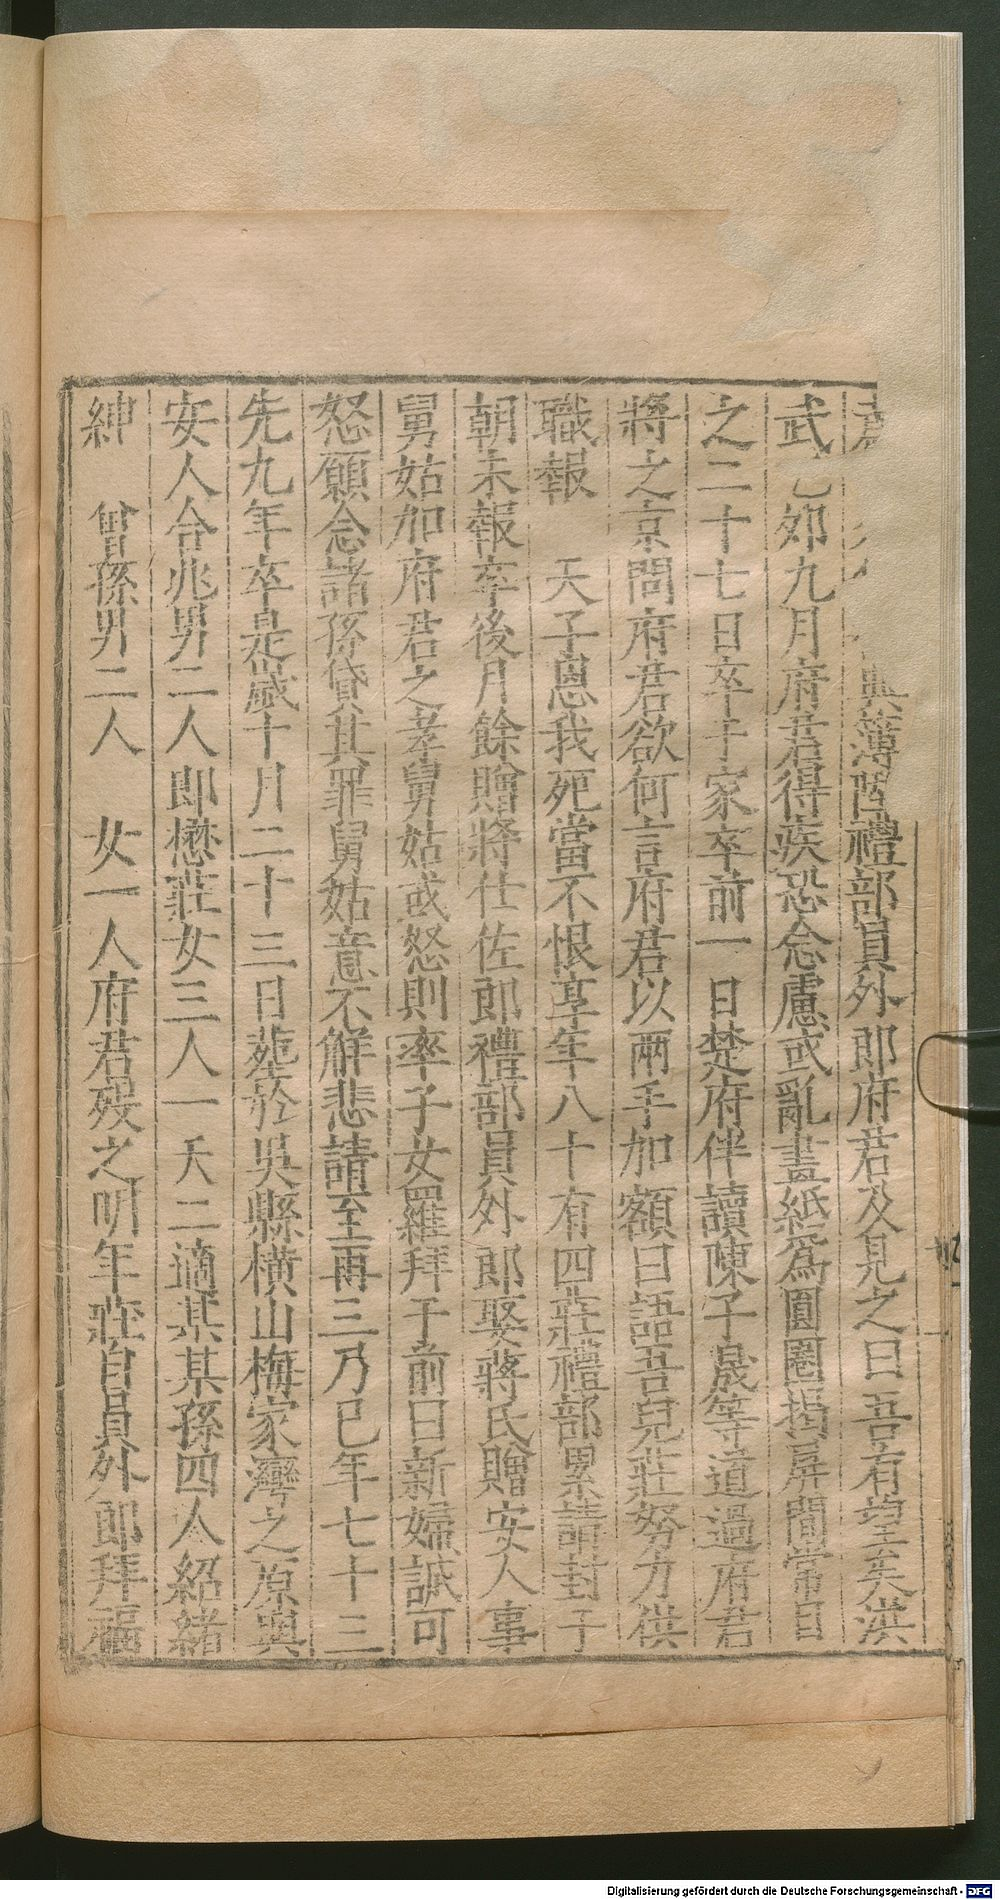 典簿陞禮部員外郎府君及見之曰吾有望矣洪
武乙卯九月府君得疾恐念慮或亂畫紙爲圓圈揭屏間常目
之二十七日卒于家卒前一日楚府伴讀陳子晟等道過府君
將之京問府君欲何言府君以兩手加額曰語吾兒莊努力供
職報　天子恩我死當不恨享年八十有四莊禮部累請封于
朝未報卒後月餘贈將仕佐郎禮部員外郎娶蔣氏贈安人事
舅姑加府君之孝舅姑或怒則率子女羅拜于前曰新婦誠可
怒願念諸孫貸其罪舅姑意不解悲請至再三乃已年七十三
先九年卒是歲十月二十三日葬於吳縣橫山梅家灣之原與
安人合兆男二人即懋莊女三人一夭二適某某孫四人紹緒
紳　曾孫男二人　女一人府君歿之明年莊自員外郎拜福
Digitalisierung gefördert durch die Deutsche Forschungsgemeinschaft - DFG